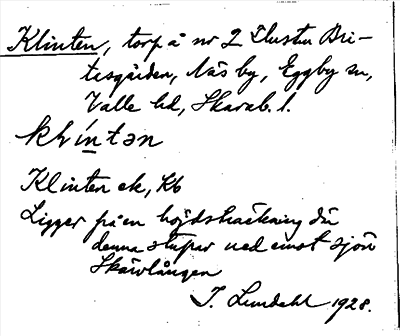 Klinten, torp å nr 2 Ilustu Bri-
tesgården, Näs by, Eggby sn,
Valle hd, Skarab. l.
klíntən
Klinten ek, Kb
Ligger på en höjdsträckning där
denna stupar ned emot sjön
Skärvlången
I. Lundahl 1928.